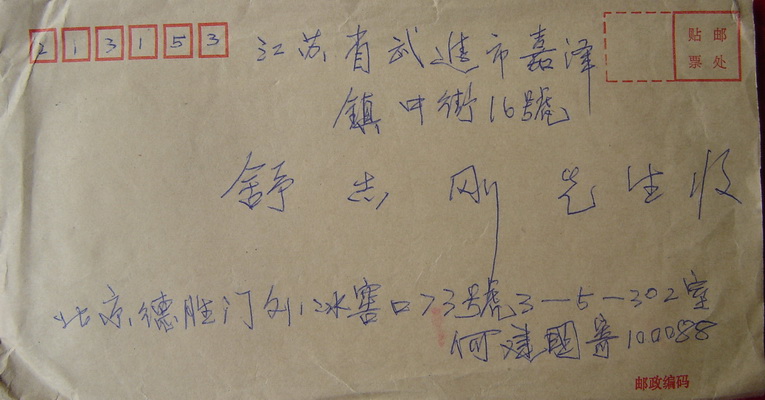 213153
贴邮
票处
江苏省武进市嘉泽
镇中街16號
舒志刚先生收
北京德胜门外冰窖口73號3-5-302室
何建国寄100088
邮政编码